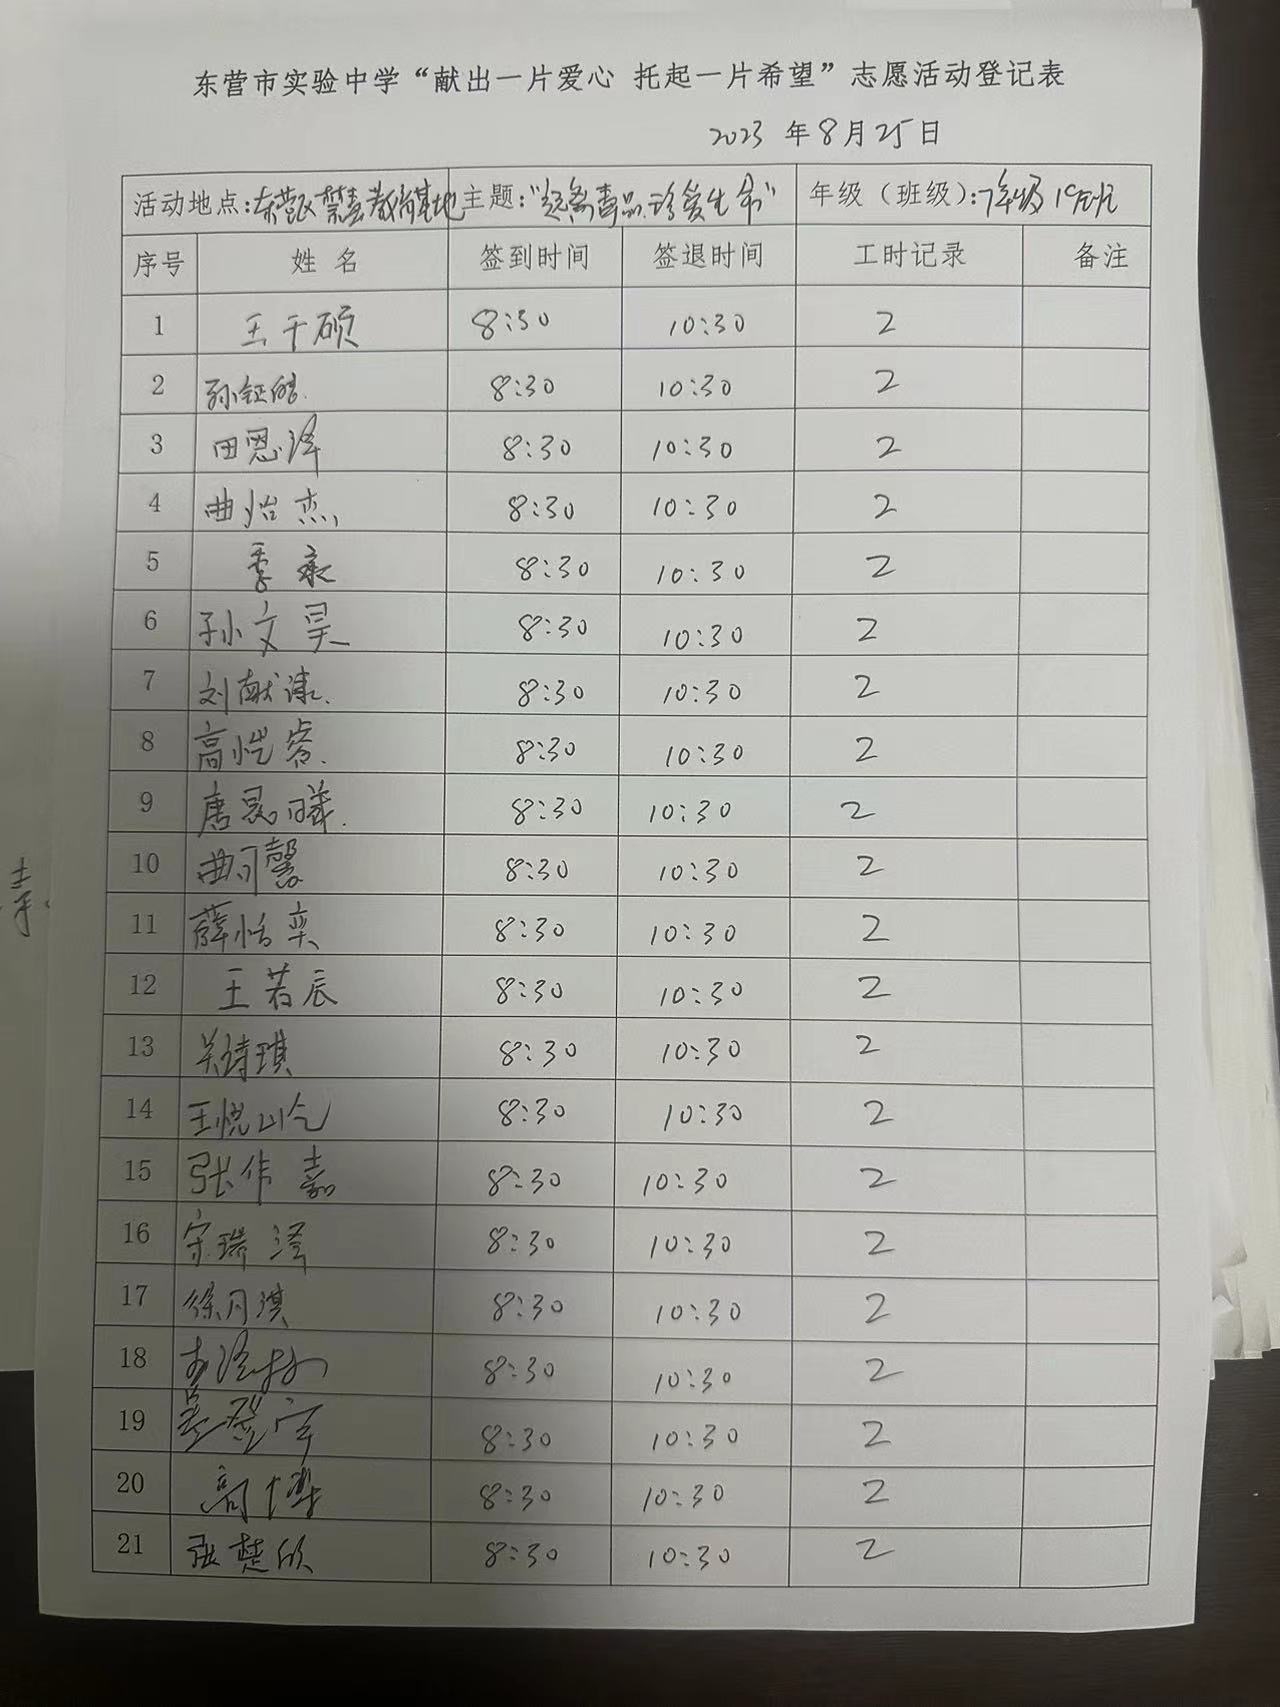 东营市实验中学“献出一片爱心 托起一片希望”志愿活动登记表
2023 年 8 月 25 日
活动地点:东营区禁毒教育基地 主题:“远离毒品 珍爱生命” 年级（班级）:7年级19班
序号 姓 名 签到时间 签退时间 工时记录 备注
1 王千硕 8:30 10:30 2
2 孙钰皓 8:30 10:30 2
3 田恩泽 8:30 10:30 2
4 曲怡杰 8:30 10:30 2
5 季康 8:30 10:30 2
6 孙文昊 8:30 10:30 2
7 刘献 8:30 10:30 2
8 高恺睿 8:30 10:30 2
9 唐晨曦 8:30 10:30 2
10 曲可馨 8:30 10:30 2
11 薛恬奕 8:30 10:30 2
12 王若辰 8:30 10:30 2
13 关诗琪 8:30 10:30 2
14 王悦 8:30 10:30 2
15 张伟嘉 8:30 10:30 2
16 宋瑞泽 8:30 10:30 2
17 徐月淇 8:30 10:30 2
18 8:30 10:30 2
19 8:30 10:30 2
20 高博 8:30 10:30 2
21 张楚欣 8:30 10:30 2